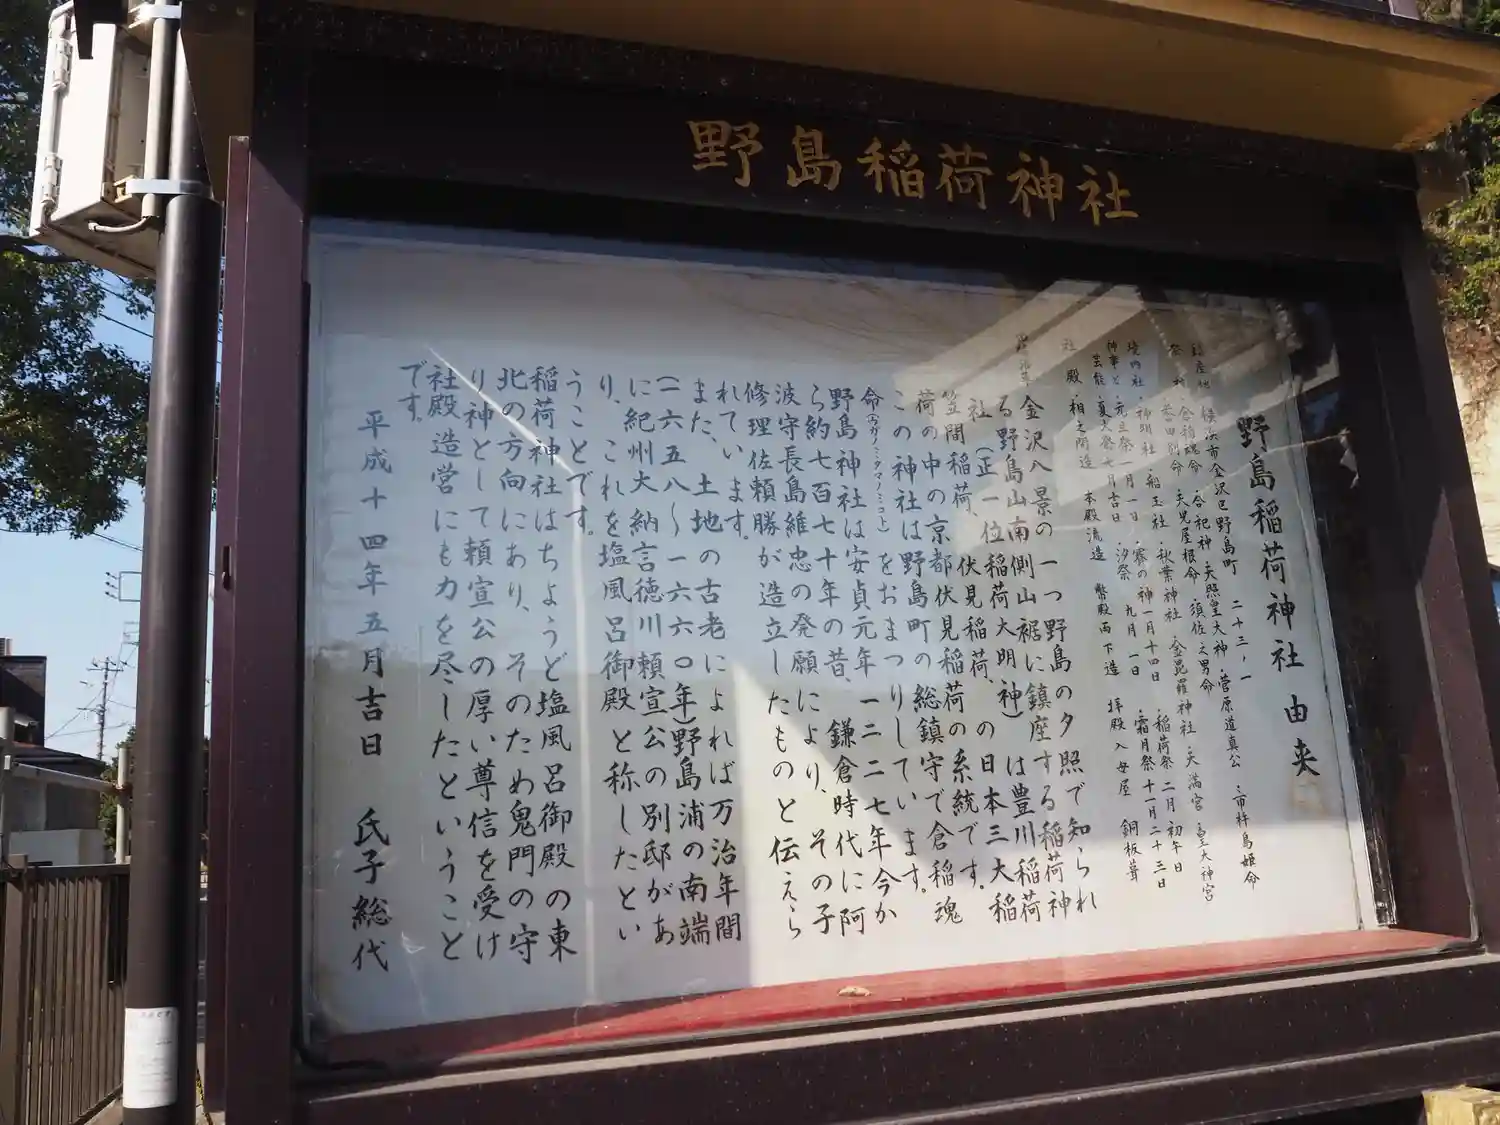 野島稲荷神社
野島稲荷神社 由来
鎮座地 横浜市金沢区野島町 二十三ノ一
祭神 倉稲魂命 合祀神 天照皇大神 菅原道真公 市杵島姫命
誉田別命 天児屋根命 須佐之男命
境内社 神明社 船玉社 秋葉神社 金毘羅神社 天満宮 皇大神宮
神事と 元旦祭一月一日 寒の神一月十四日 稲荷祭二月初午日
芸能 夏大祭七月吉日 汐祭 九月一日 霜月祭十一月二十三日
社殿 相之間造 本殿流造 幣殿両下造 拝殿入母屋 銅板葺
金沢八景の一つ野島の夕照で知られ
る野島山南側山裾に鎮座する稲荷神
社(正一位稲荷大明神)は豊川稲荷
笠間稲荷、伏見稲荷、の日本三大稲
荷の中の京都伏見稲荷の系統です。
この神社は野島町の総鎮守で倉稲魂
命(ウガノミタマノミコト)をおまつりしています。
野島神社は安貞元年一二二七年今か
ら約七百七十年の昔、鎌倉時代に阿
波守長島維忠の発願により、その子
修理佐頼勝が造立したものと伝えら
れています。
また、土地の古老によれば万治年間
(一六五八~一六六〇年)野島浦の南端
に紀州大納言徳川頼宣公の別邸があ
り、これを塩風呂御殿と称したとい
うことです。
稲荷神社はちょうど塩風呂御殿の東
北の方向にあり、そのため鬼門の守
り神として頼宣公の厚い尊信を受け
社殿造営にも力を尽したということ
です。
平成十四年五月吉日 氏子総代